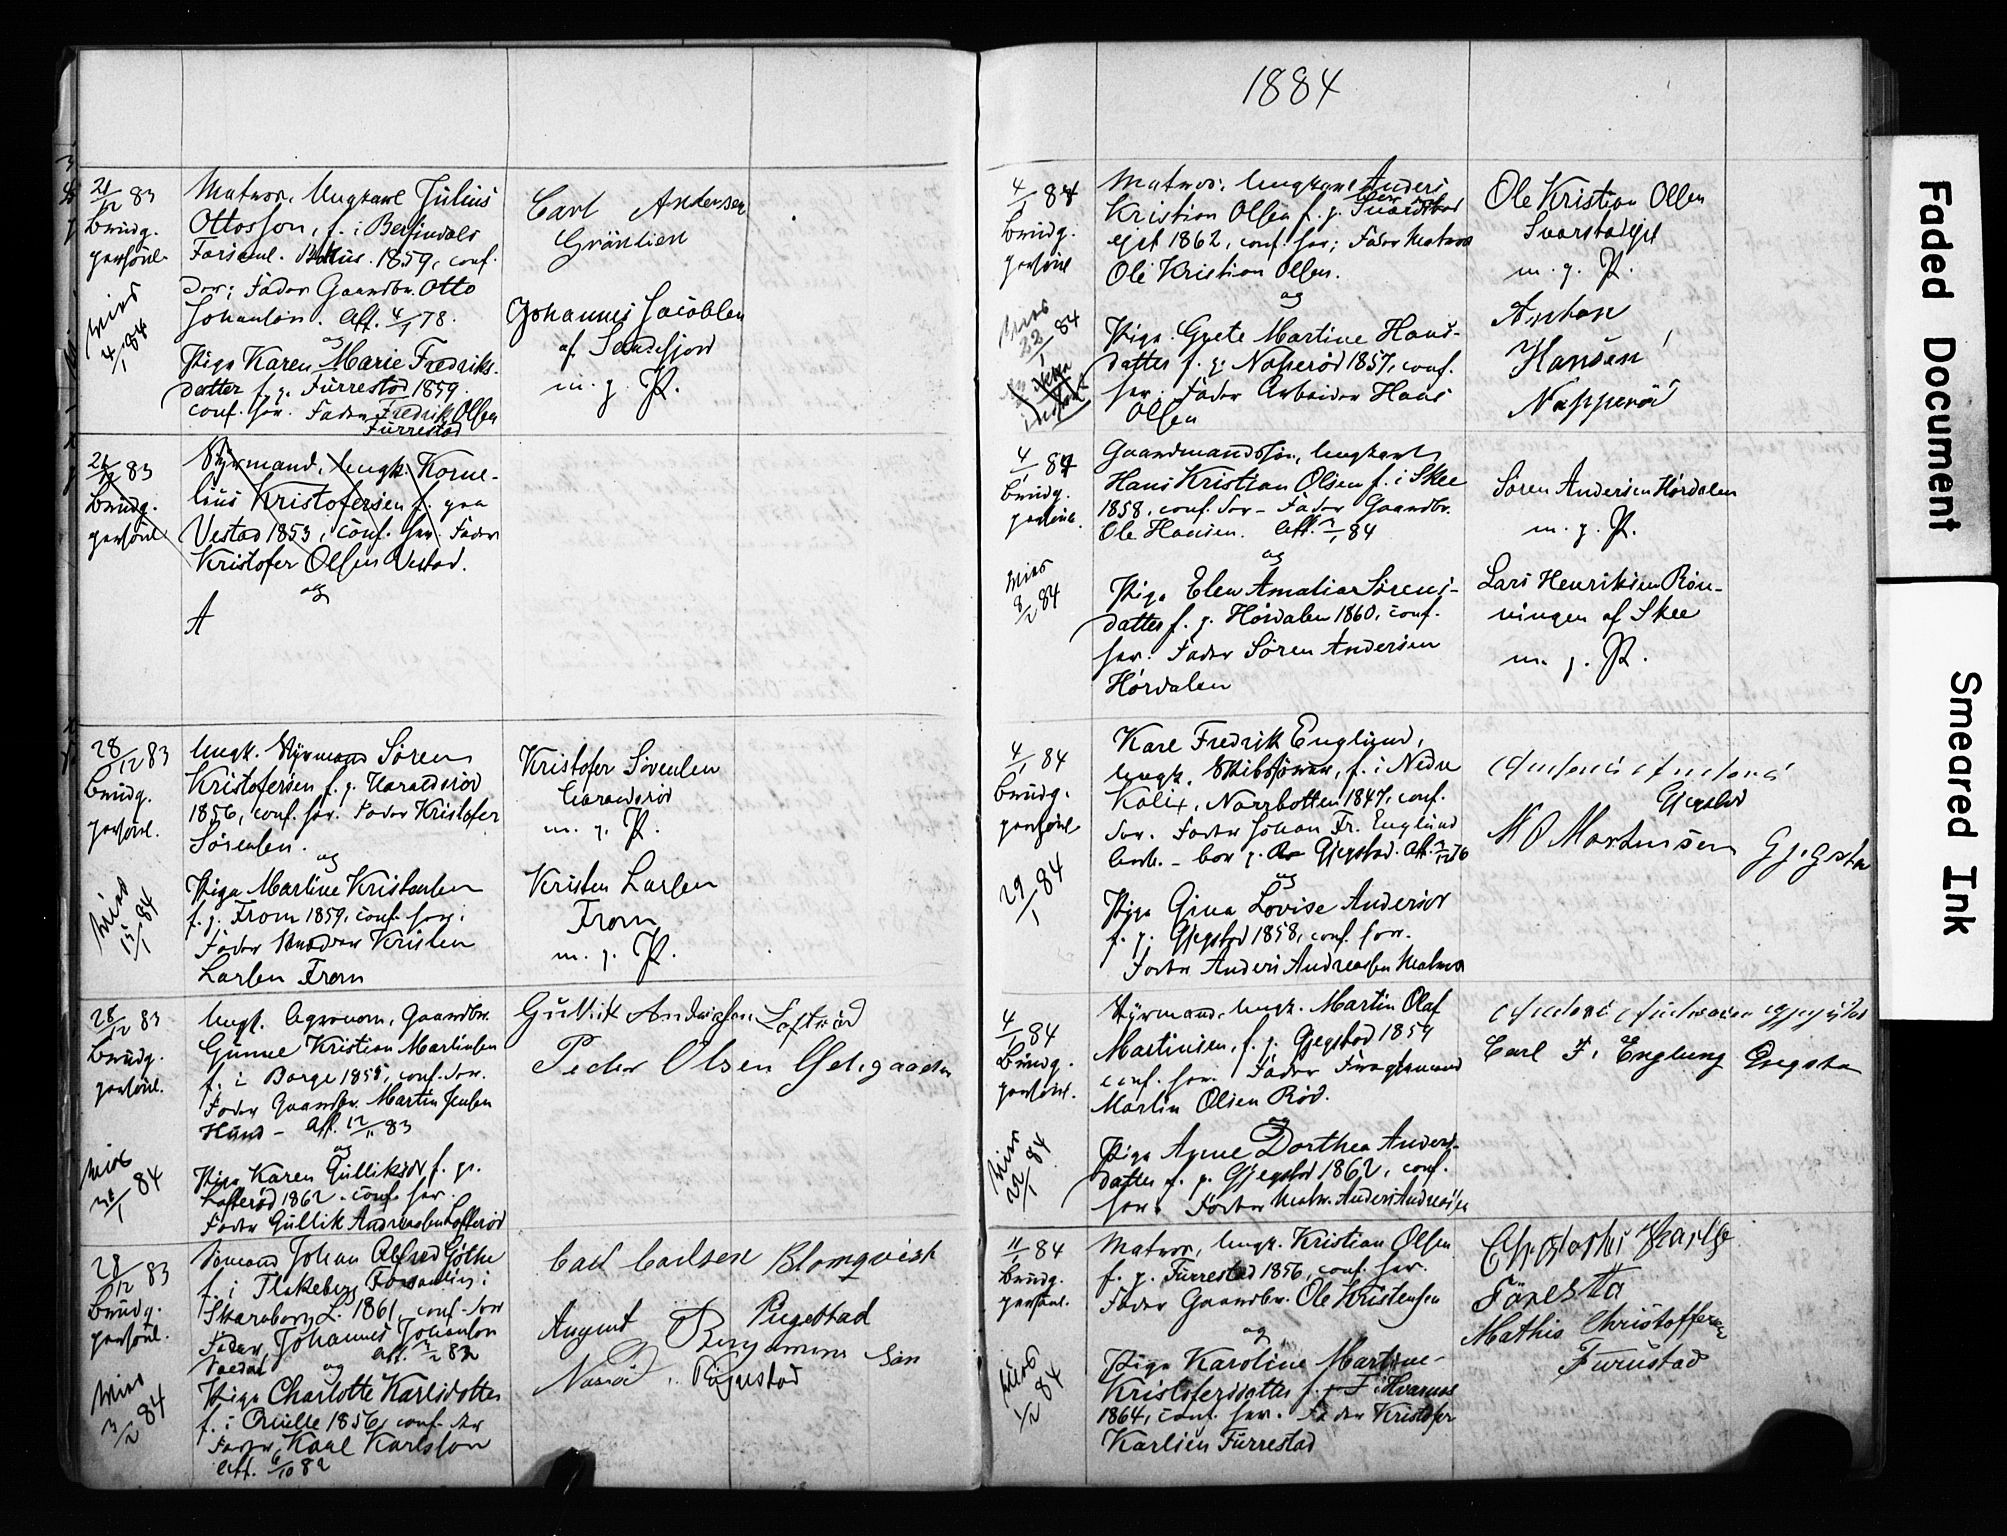 21/12 83
Brudg.
personl.
Viet
4/1 84
Matros, Ungkarl Julius
Ottosson, f. i
1859, conf.
der; Fader Gaardbr. Otto
Johanson. Att. 4/1 78.
og
Pige Karen Marie Fredriks-
datter f. p. Furrestad 1859.
conf. her. Fader Fredrik Olsen
Furrestad
Carl Andersen
Grönlien
Johannes Jacobsen
af Sandefjord
m. p. P.
21/12 83
Brudg.
personl.
Styrmand, Ungk. Korne-
lius Kristofersen f. paa
Vestad 1853, conf. her. Fader
Kristofer Olsen Vestad.
og
A
28/12 83
Brudg.
personl.
Viet
15/1 84
Ungk. Styrmand Søren
Kristofersen f. p. Haraldsrød
1856, conf. her. Fader Kristofer
Sørensen.
og
Pige Martine Kristensen
f. p. From 1859, conf. her;
Fader Kristen
Larsen From
Kristofer Sørensen
Haraldsrød
m. p. P.
Kristen Larsen
From
m. p. P.
28/12 83
Brudg.
personl.
Viet
84
Ungk. Agronom, Gaardbr.
Gunne Kristian Martinsen
f. i Borge 1855, conf. der.
Fader Gaardbr. Martin Jensen
Hund – Att. 12/11 83
og
Pige Karen Gulliksdr f. p.
Lofterød 1862. conf. her.
Fader Gullik Andreassen Lofterød
Gullik Andreassen Lofterød
Peder Olsen
28/12 83
Brudg.
personl.
Viet
3/2 84
Sömand Johan Alfred Göthe
f. i Flakeberg Forsamling i
Skaraborg L. 1861, conf. der
Fader Johannes Johanson
og
Pige Charlotte Karlsdotter
f. i Qville 1856, conf. der
Fader Karl Karlsson
Att. 6/10 82
Carl Carlsen Blomqvist
Pugestad
August Bengtson
1884
4/1 84
Brudg.
personl.
Viet
22/1 84
Matros, Ungkarl Anders
Kristian Olsen f. p. Svarstad
ejet 1862, conf. her; Fader Matros
Ole Kristian Olsen.
og
Pige Grete Martine Hans-
datter f. p. Napperød 1857, conf.
her. Fader Arbeider Hans
Olsen
Ole Kristian Olsen
Svarstadejet
m. p. P.
Anton
Hansen
Napperød
4/1 84
Brudg.
personl.
Viet
8/2 84
Gaardmandssøn, Ungkarl
Hans Kristian Olsen f. i Skee
1858, conf. der – Fader Gaardbr.
Ole Hansen. Att. 84
og
Pige Elen Amalia Sørens-
datter f. p. Hørdalen 1860, conf.
her. Fader Søren Andersen
Hørdalen
Søren Andersen Hørdalen
m. p. P.
Lars Henriksen Røn-
ningen af Skee
m. p. P.
4/1 84
Brudg.
personl.
29/1 84
Karl Fredrik Englund,
Ungk. f. i Nedre
Kalix, Norrbotten 1847, conf.
der. Fader Johan Fr. Englund
Arb. – bor p. Gjegstad. Att.
og
Pige Gina Lovise Andersdr
f. p. Gjegstad 1858, conf. her.
Fader Anders Andreassen Matros
Gjegstad
M O Martinsen Gjegsta
4/1 84
Brudg.
personl.
Viet
22/1 84
Styrmand, Ungk. Martin Olaf
Martinsen, f. p. Gjegstad 1859
conf. her. Fader
Martin Olsen Rød.
og
Pige Agne Dorthea Anders-
datter f. p. Gjegstad 1862, conf.
her. Fader Matr. Anders Andreassen
Carl F. Englung
11/1 84
Brudg.
personl.
Viet
1/2 84
Matros, Ungk. Kristian Olsen
f. p. Furrestad 1856, conf. her.
Fader Gaardbr. Ole Kristensen
og
Pige Karoline Martine
Kristofersdatter f. p.
1864, conf. her. Fader Kristofer
Karlsen Furrestad
Mathis Christoffersen
Furustad
Faded Document
Smeared Ink